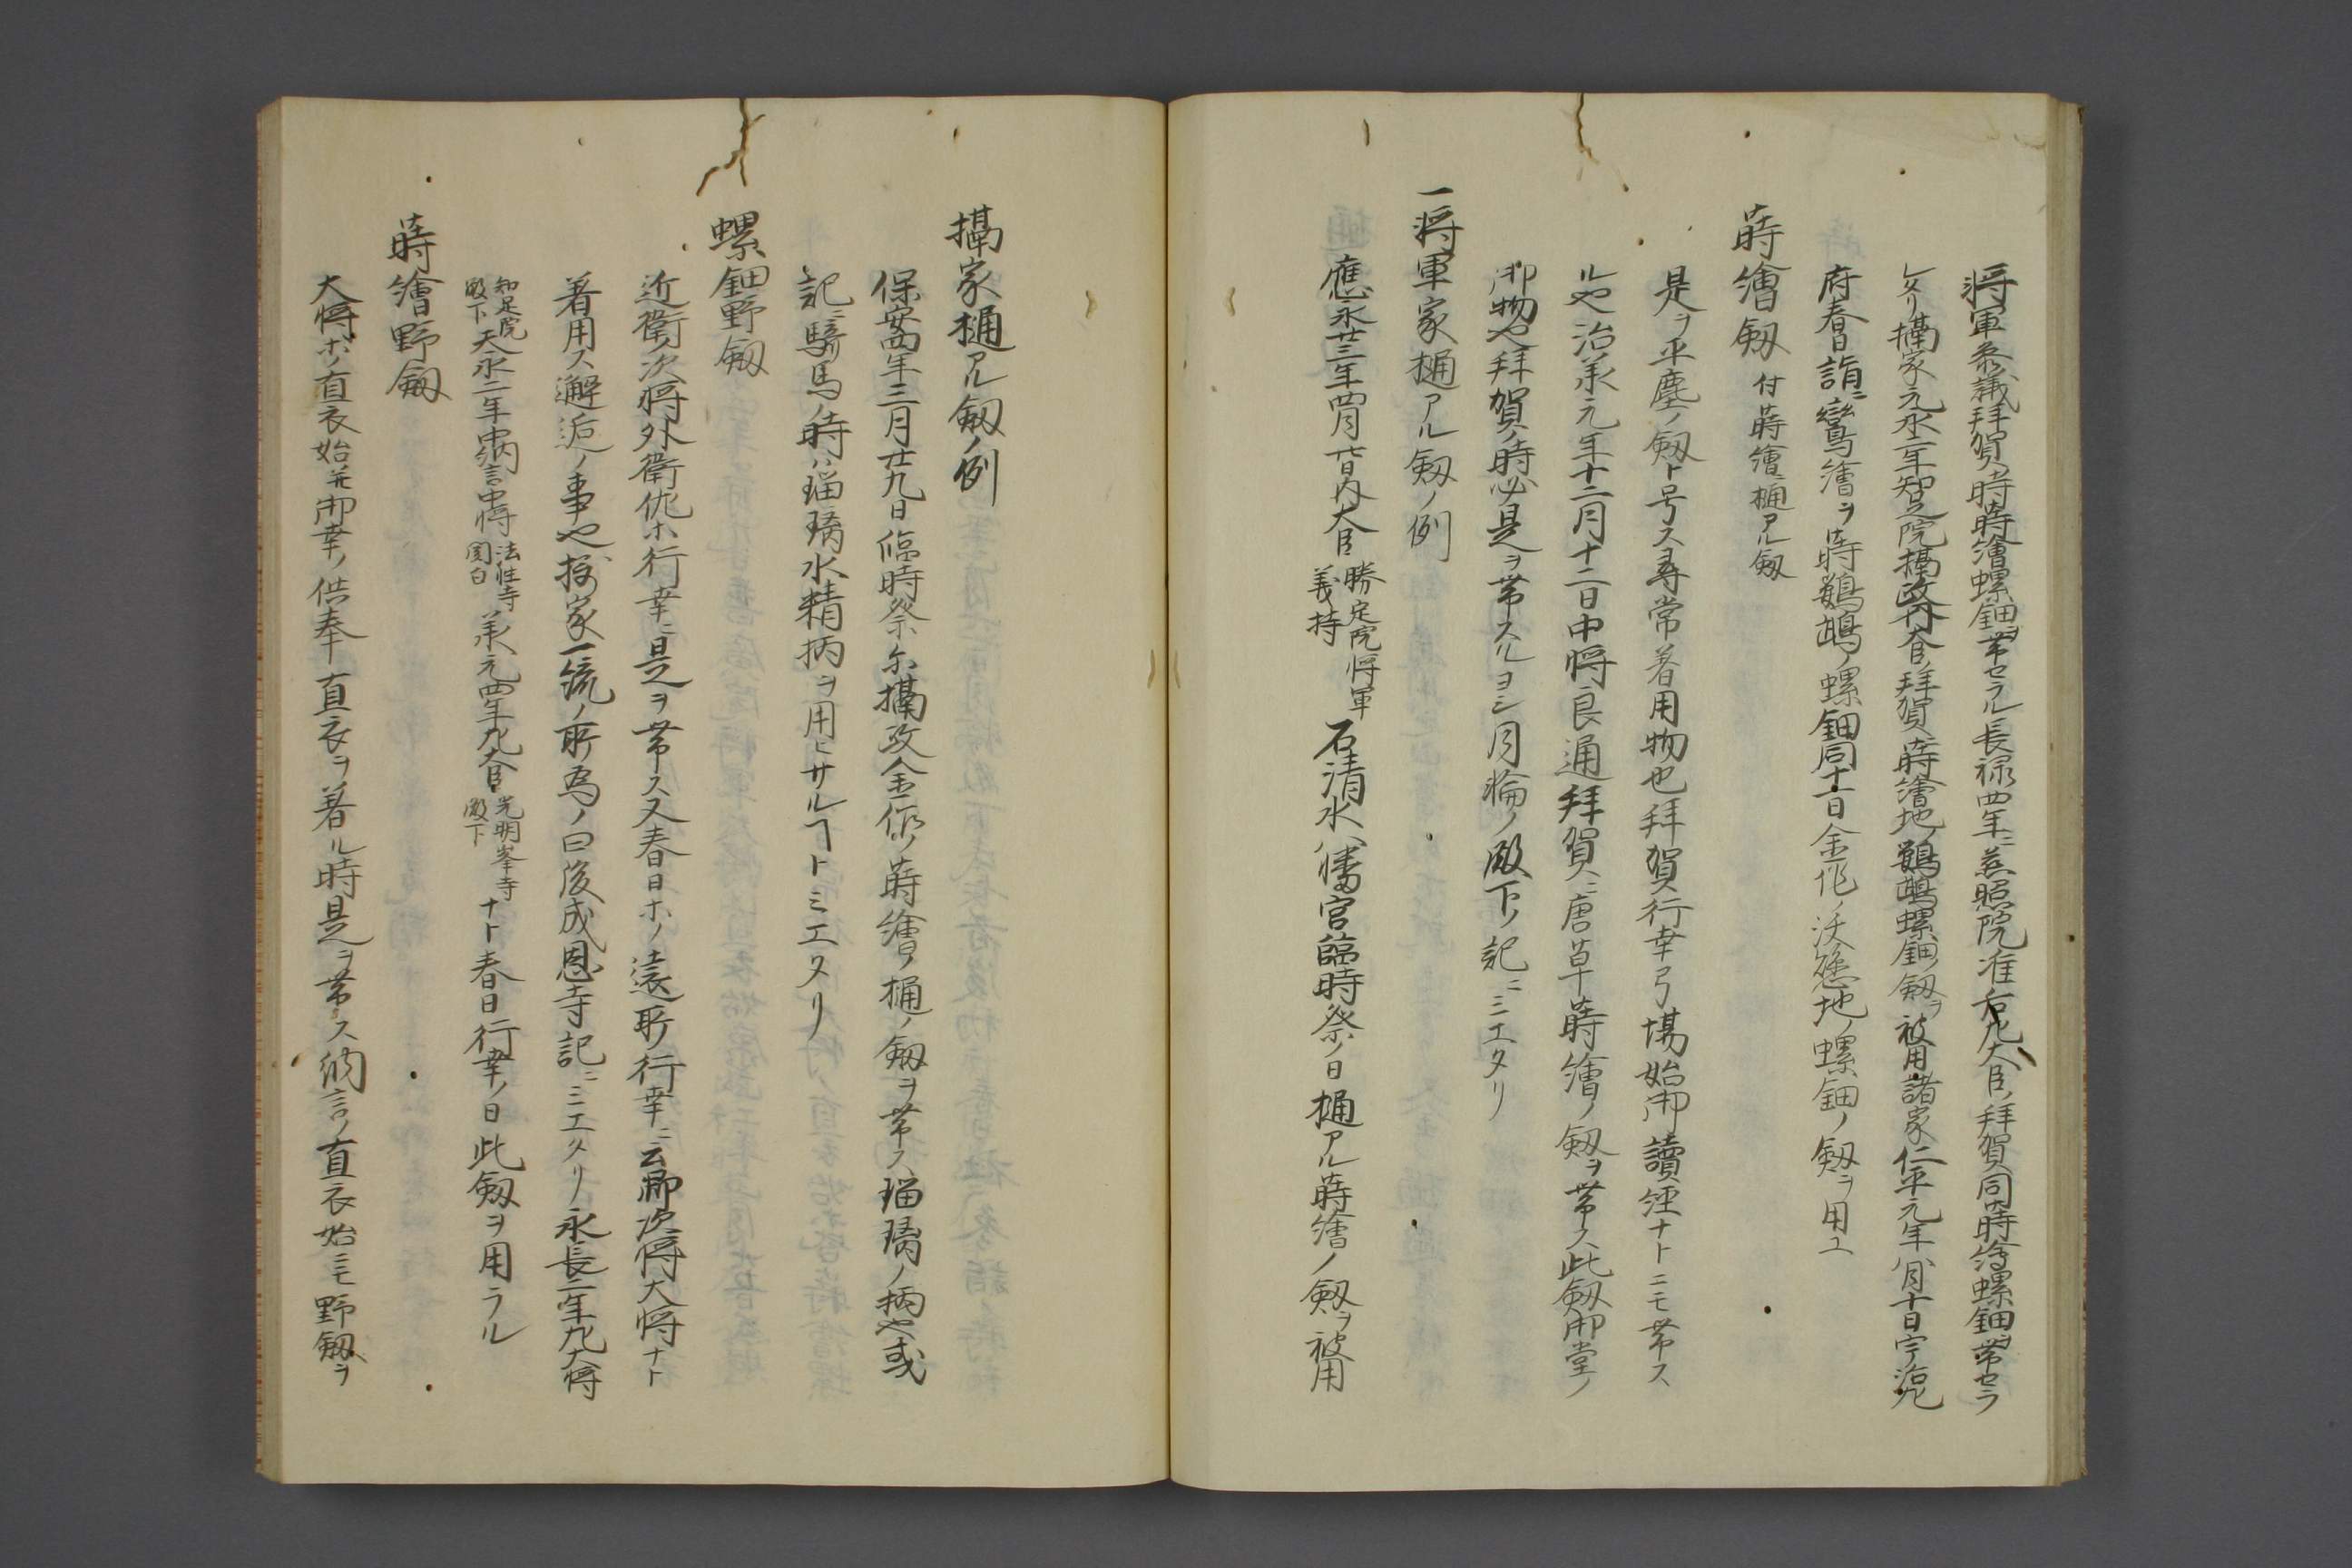 将軍参議拜賀時蒔繪螺鈿ヲ帯セラル長禄四年ニ慈照院准后左大臣ノ拜賀同蒔繪螺鈿ヲ帯セラ
レタリ攝家元永二年知足院攝政内大臣ノ拜賀ニ蒔繪地ノ鸚鵡螺鈿ノ釼ヲ被用諸家仁平元年八月十日宇治左
府春日詣ニ鸞繪ヲ蒔鸚鵡ノ螺鈿同十一日金作ノ沃懸地ノ螺鈿ノ釼ヲ用エ
蒔繪釼 付蒔繪ニ樋アル釼
是ヲ平塵ノ釼ト号ス尋常着用物也拜賀行幸弓場始御讀經ナトニモ帯ス
ルや治承元年十二月十二日中将良通拜賀ニ唐草蒔繪ノ釼ヲ帯ス此釼御堂ノ
御物や拜賀ノ時必是ヲ帯スルヨシ月輪ノ殿下ノ記ニミエタリ
一将軍家樋アル釼ノ例
應永廿三年四月廿日内大臣 勝定院将軍 義持 石清水八幡宮臨時祭ノ日樋アル蒔繪ノ釼ヲ被用
攝家樋アル釼ノ例
保安四年三月廿九日臨時祭ニ攝政金作ノ蒔繪ノ樋ノ釼ヲ帯ス瑠璃ノ柄や或
記ニ騎馬ノ時ハ瑠璃水精柄ヲ用ヒサルヿトミエタリ
螺鈿野釼
近衛ノ次将外衛佐ホ行幸ニ是ヲ帯ス又春日ホノ遠所行幸ニ云卿次将大将ナト
着用ス邂逅ノ事や按家一流ノ所為ノ曰後成恩寺記ニミエタリ永長二年左大将
知足院 殿下 天永二年中納言中将 法性寺 関白 承元四年左大臣 光明峯寺 殿下 ナト春日行幸ノ日此釼ヲ用ラル
蒔繪野釼
大将ホノ直衣始并御幸ノ供奉直衣ヲ着ル時是ヲ帯ス納言ノ直衣始ニモ野釼ヲ